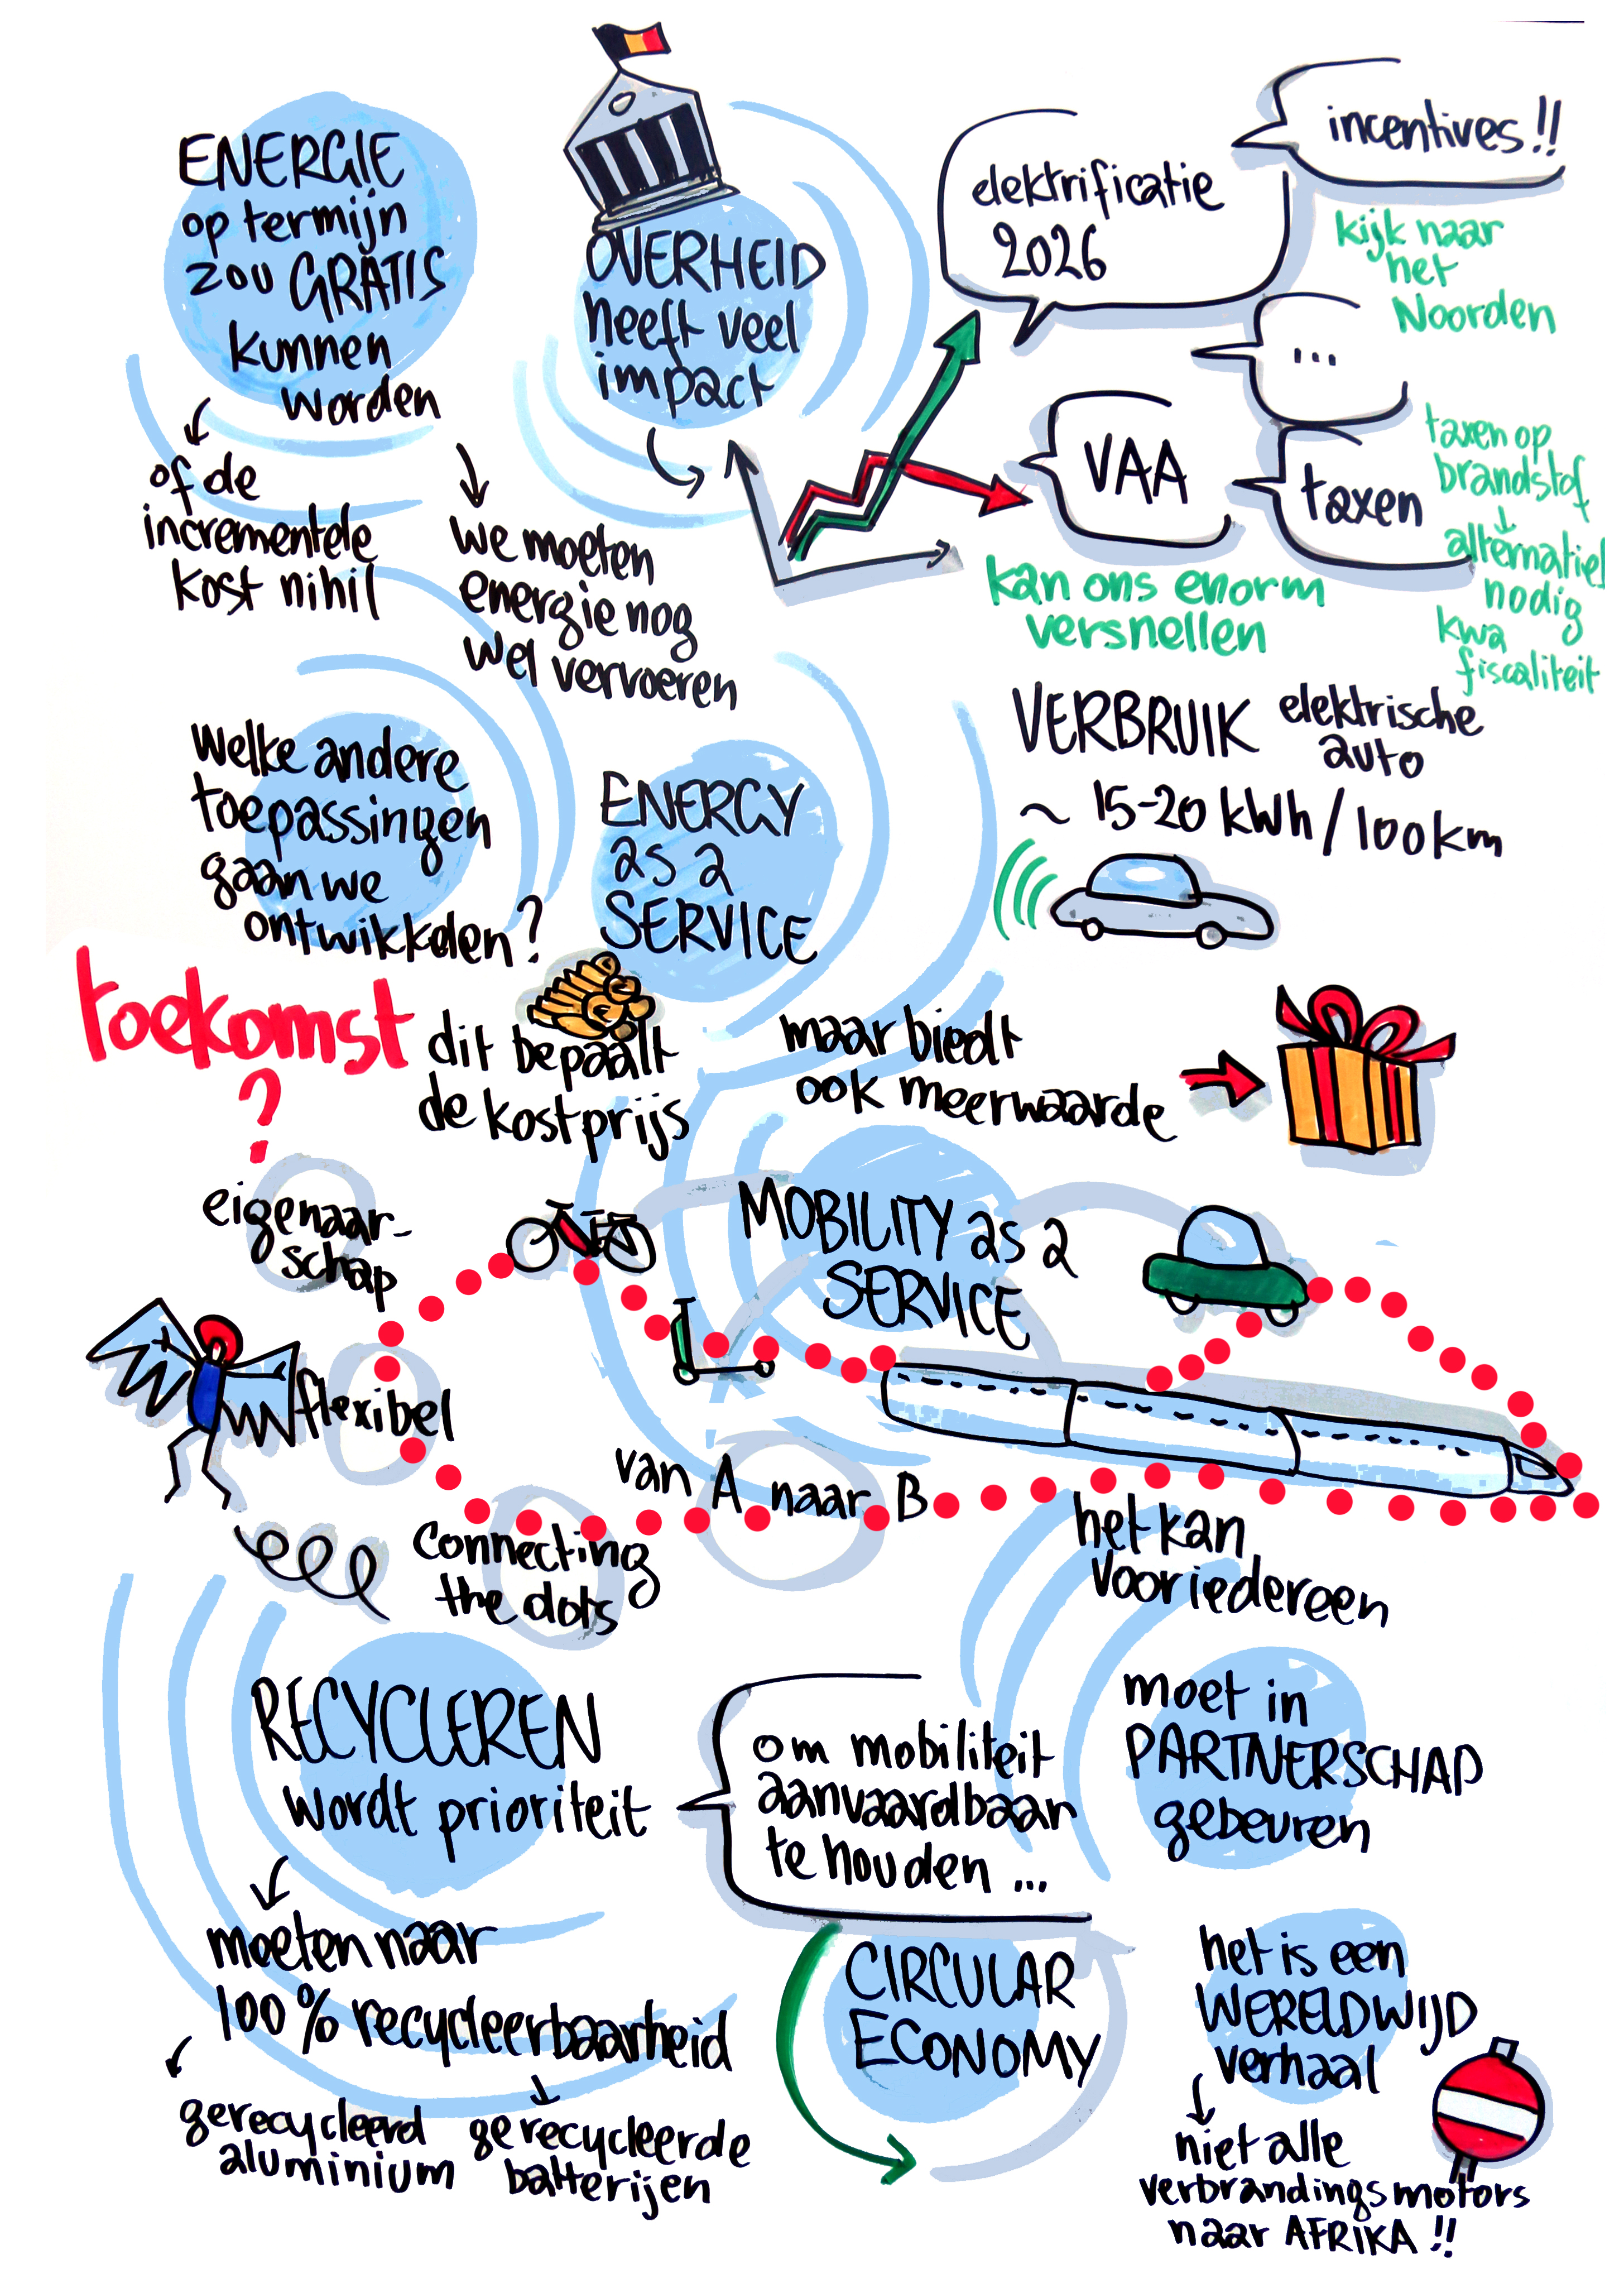 ENERGIE
op termijn
zou GRATIS
kunnen
worden
of de
incrementele
kost nihil
we moeten
energie nog
wel vervoeren
OVERHEID
heeft veel
impact
elektrificatie
2026
incentives!!
kijk naar
het
Noorden
...
VAA
taxen
taxen op
brandstof
alternatief
nodig
kwa
fiscaliteit
kan ons enorm
versnellen
VERBRUIK elektrische
auto
~ 15-20 kWh/100km
Welke andere
toepassingen
gaan we
ontwikkelen?
ENERGY
as a
SERVICE
toekomst
?
dit bepaalt
de kostprijs
maar biedt
ook meerwaarde
eigenaar-
schap
MOBILITY as a
SERVICE
flexibel
van A naar B
connecting
the dots
het kan
voor iedereen
RECYCLEREN
wordt prioriteit
om mobiliteit
aanvaardbaar
te houden ...
moet in
PARTNERSCHAP
gebeuren
moeten naar
100% recycleerbaarheid
gerecycleerd
aluminium
gerecycleerde
batterijen
CIRCULAR
ECONOMY
het is een
WERELDWIJD
verhaal
niet alle
verbrandingsmotors
naar AFRIKA!!